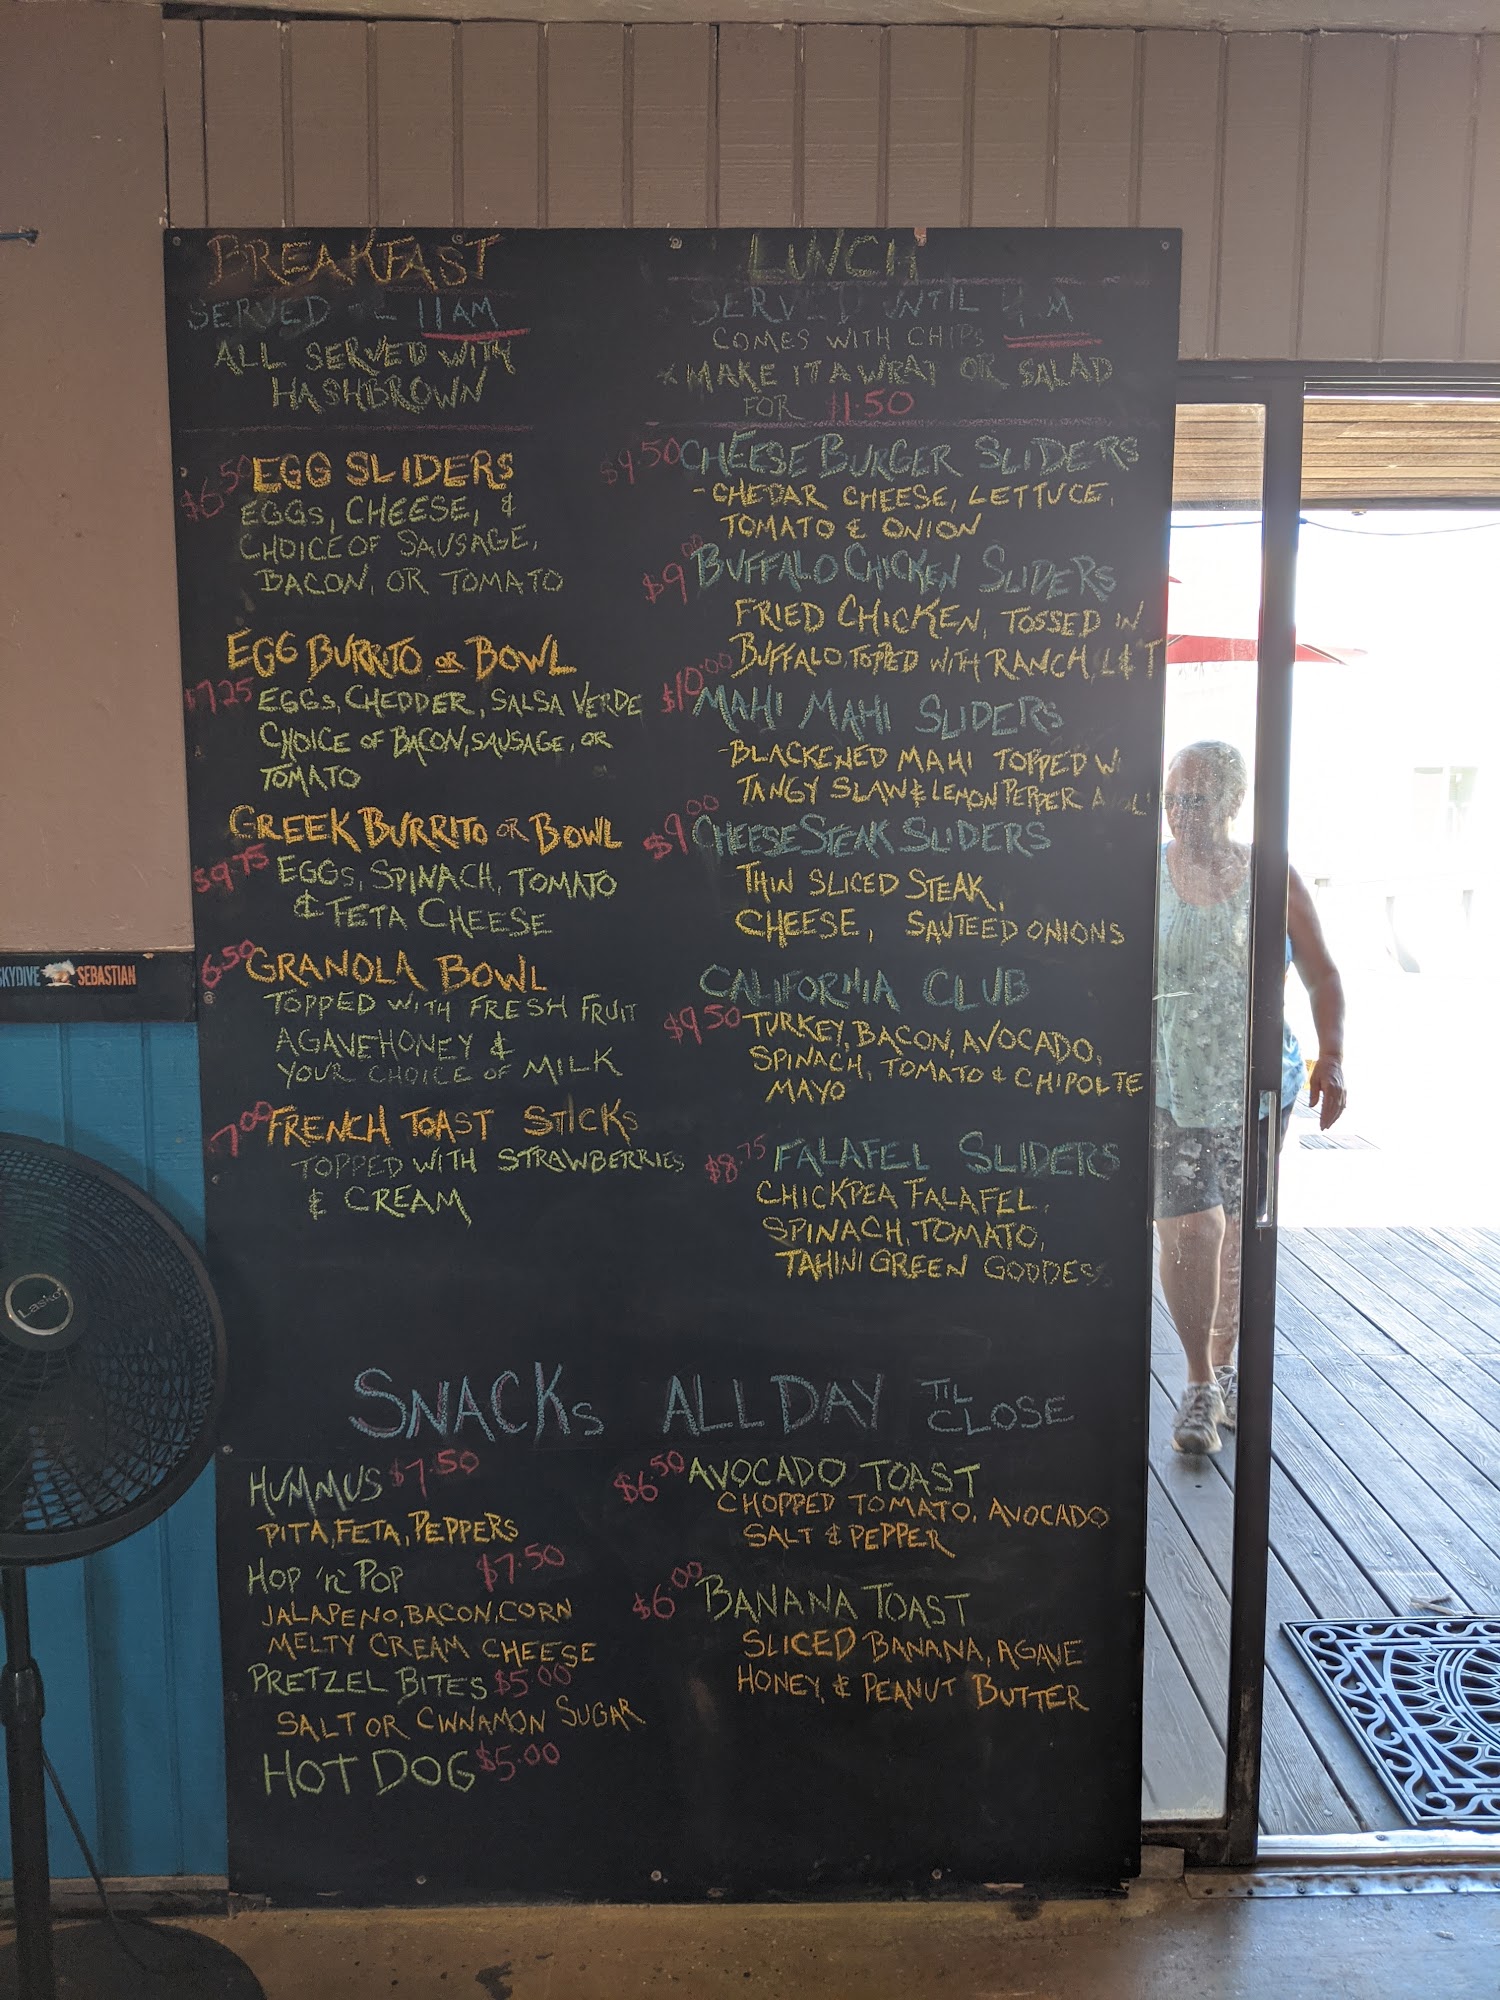 BREAKFAST
SERVED 11AM
ALL SERVED WITH
HASHBROWN
$6.50 EGG SLIDERS
EGGS, CHEESE, &
CHOICE OF SAUSAGE,
BACON, OR TOMATO
EGG BURRITO OR BOWL
$7.25 EGGS, CHEDDER, SALSA VERDE
CHOICE OF BACON, SAUSAGE, OR
TOMATO
GREEK BURRITO OR BOWL
$9.75 EGGS, SPINACH, TOMATO
& FETA CHEESE
6.50 GRANOLA BOWL
TOPPED WITH FRESH FRUIT
AGAVE HONEY &
YOUR CHOICE OF MILK
7.00 FRENCH TOAST STICKS
TOPPED WITH STRAWBERRIES
& CREAM
LUNCH
SERVED UNTIL
COMES WITH CHIPS
* MAKE IT A WRAP OR SALAD
FOR $1.50
$9.50 CHEESE BURGER SLIDERS
- CHEDAR CHEESE, LETTUCE,
TOMATO & ONION
$9.00 BUFFALO CHICKEN SLIDERS
FRIED CHICKEN, TOSSED IN
BUFFALO, TOPPED WITH RANCH, L & T
$10.00 MAHI MAHI SLIDERS
- BLACKENED MAHI TOPPED W
TANGY SLAW & LEMON PEPPER
$9.00 CHEESE STEAK SLIDERS
THIN SLICED STEAK,
CHEESE, SAUTEED ONIONS
CALIFORNIA CLUB
$9.50 TURKEY, BACON, AVOCADO,
SPINACH, TOMATO & CHIPOLTE
MAYO
$8.75 FALAFEL SLIDERS
CHICKPEA FALAFEL,
SPINACH, TOMATO,
TAHINI GREEN GODDESS
SNACKS ALL DAY TIL
CLOSE
HUMMUS $7.50
PITA, FETA, PEPPERS
HOP 'n' POP $7.50
JALAPENO, BACON, CORN
MELTY CREAM CHEESE
PRETZEL BITES $5.00
SALT OR CINNAMON SUGAR
HOT DOG $5.00
$6.50 AVOCADO TOAST
CHOPPED TOMATO, AVOCADO
SALT & PEPPER
$6.00 BANANA TOAST
SLICED BANANA, AGAVE
HONEY, & PEANUT BUTTER
SKYDIVE SEBASTIAN
Lasko